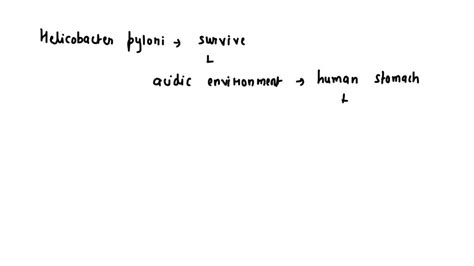 Helicobacter pylori → survive
acidic environment → human stomach